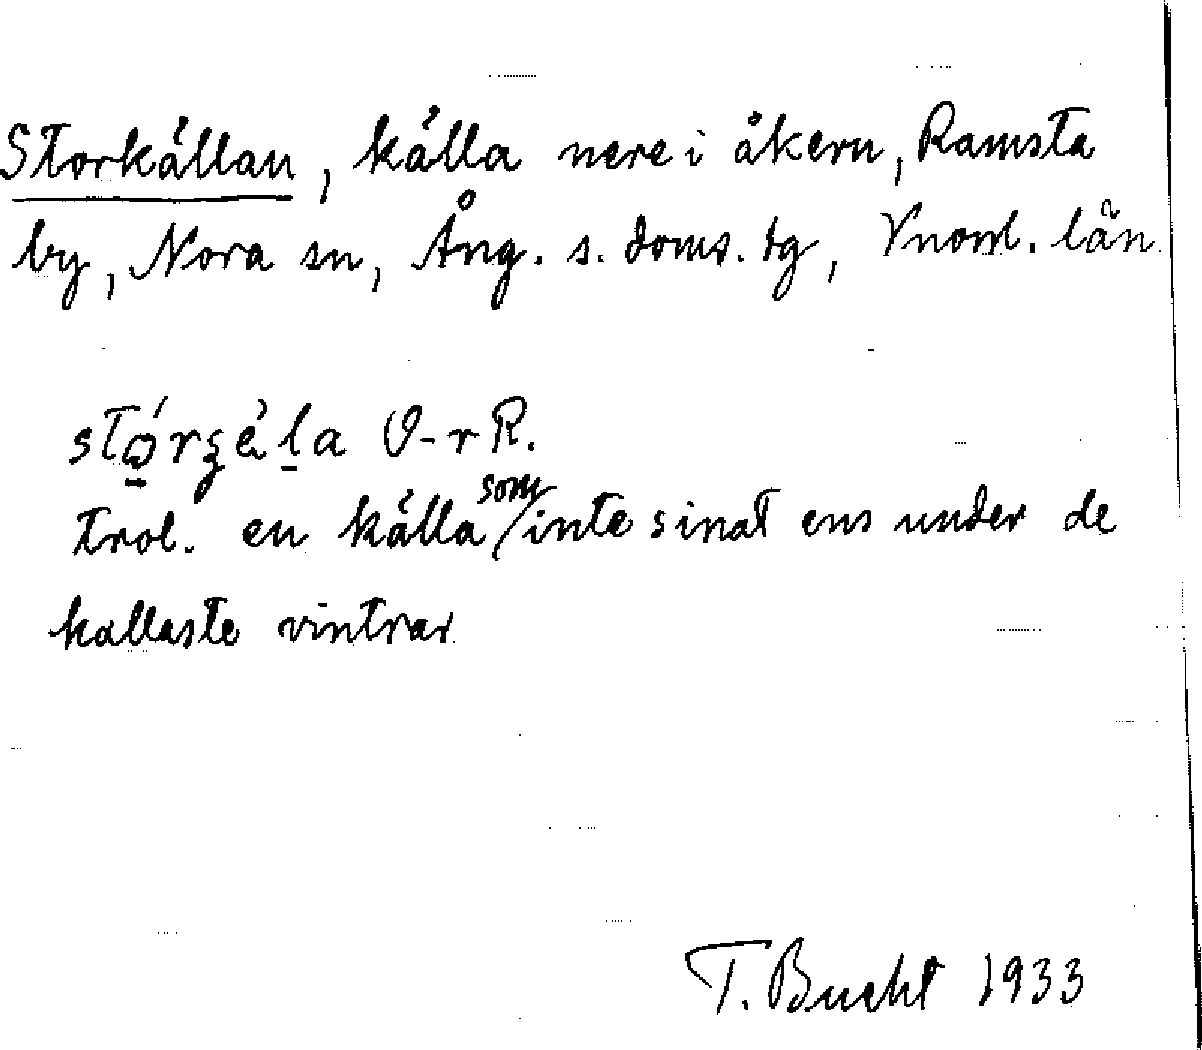 Storkällan, källa nere i åkern, Ramsta
by, Nora sn, Ång. s. doms. tg, Vnorrl. län
O-r R.
trol. en källa som inte sinat ens under de
kallaste vintrar
T. Bucht 1933